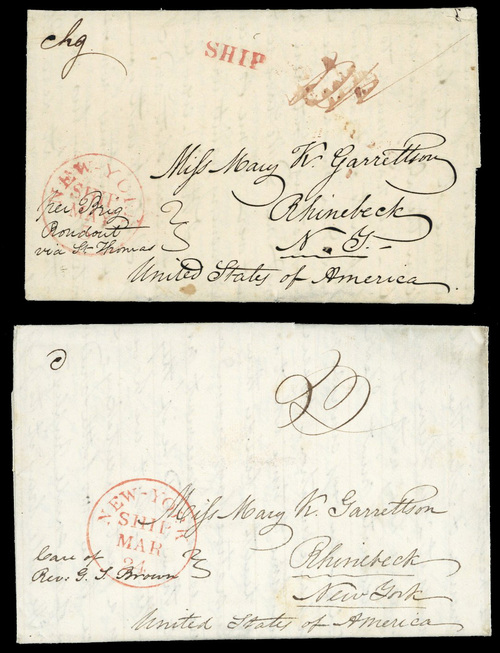 chg
SHIP
NEW-YORK
SHIP
MAR
Miss Mary W. Garrettson
Rhinebeck
N. Y.
United States of America
per Brig
Rondout
via St. Thomas
NEW-YORK
SHIP
MAR
24
Miss Mary W. Garrettson
Rhinebeck
New York
United States of America
Care of
Rev. G. S. Brown